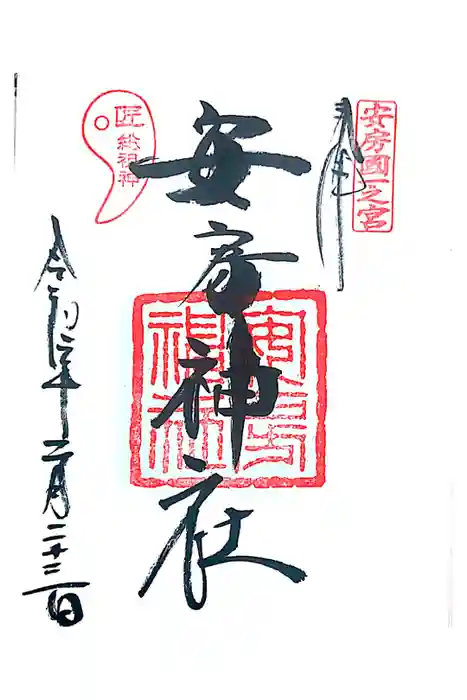 安房國一之宮
奉拝
安房神社
安房神社
匠総祖神
令和二年二月二十三日